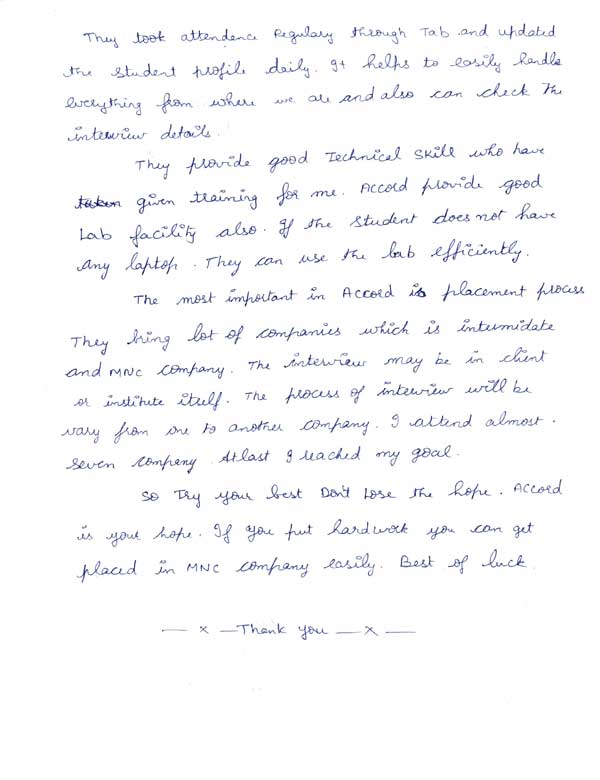 They took attendence Regulary through Tab and updated
the student profile daily. It helps to easily handle
everything from where we are and also can check the
interview details.
They provide good Technical Skill who have
given training for me. Accord provide good
Lab facility also. If the student does not have
any laptop. They can use the lab efficiently.
The most important in Accord is placement process
They bring lot of companies which is intermidate
and MNC company. The interview may be in client
or institute itself. The process of interview will be
vary from one to another company. I attend almost.
seven company. Atlast I reached my goal.
So Try your best Don't Lose the hope. Accord
is your hope. If you put hardwork you can get
placed in MNC company easily. Best of luck.
— x — Thank you — x —